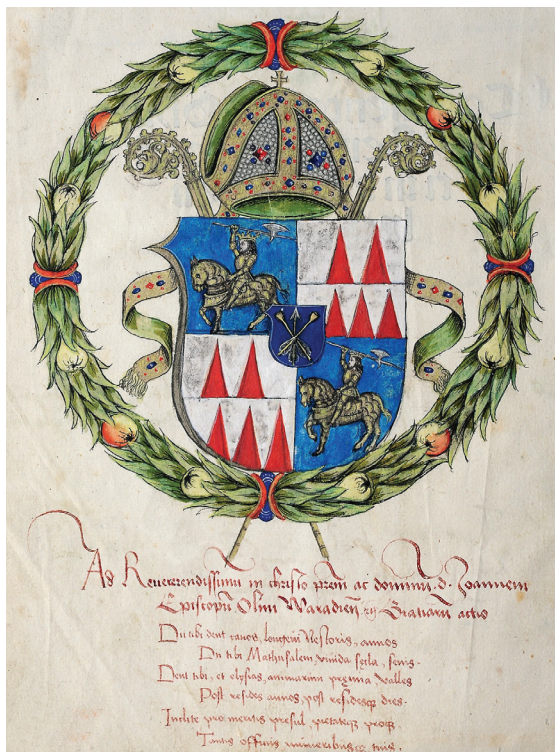 Ad Revererendissimu in christo prem ac dominu. d. Joannem
Episcopu Olim Waradien Gratiaru actio
Du tibi dent canos, longevi Nestoris, annos
Du tibi Mathusalem, vivida secla, senis.
Dent tibi, et elysias, animarum premia valles
Post resides annos, post residesque dies.
Inclite pro meritis presul, pietateque
Tantis officiis muneribusque tuis.